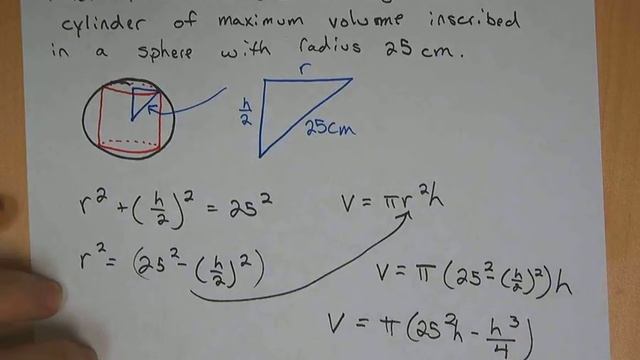 cylinder of maximum volume inscribed
in a sphere with radius 25 cm.
r
h/2
25cm
r² + (h/2)² = 25²
V = πr²h
r² = (25² - (h/2)²)
V = π(25² - (h/2)²)h
V = π(25²h - h³/4)